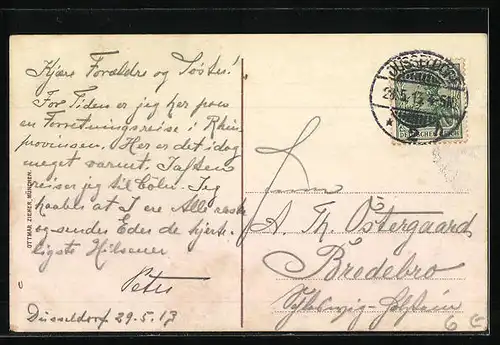 Kjære Forældre og Søster!
For Tiden er jeg her paa
en Forretningsreise i Rhin
provinsen. Her er det idag
meget varmt. I aften
reiser jeg til Cöln. Jeg
haaber at I ere Alle raske
og sender Eder de hjerte-
ligste Hilsener
Peter
Düsseldorf 29-5.13
OTTMAR ZIEHER, MÜNCHEN.
DÜSSELDORF
DEUTSCHES REICH
Herrn
A. Th. Östergaard
Bredebro
Schleswig-Holstein
6